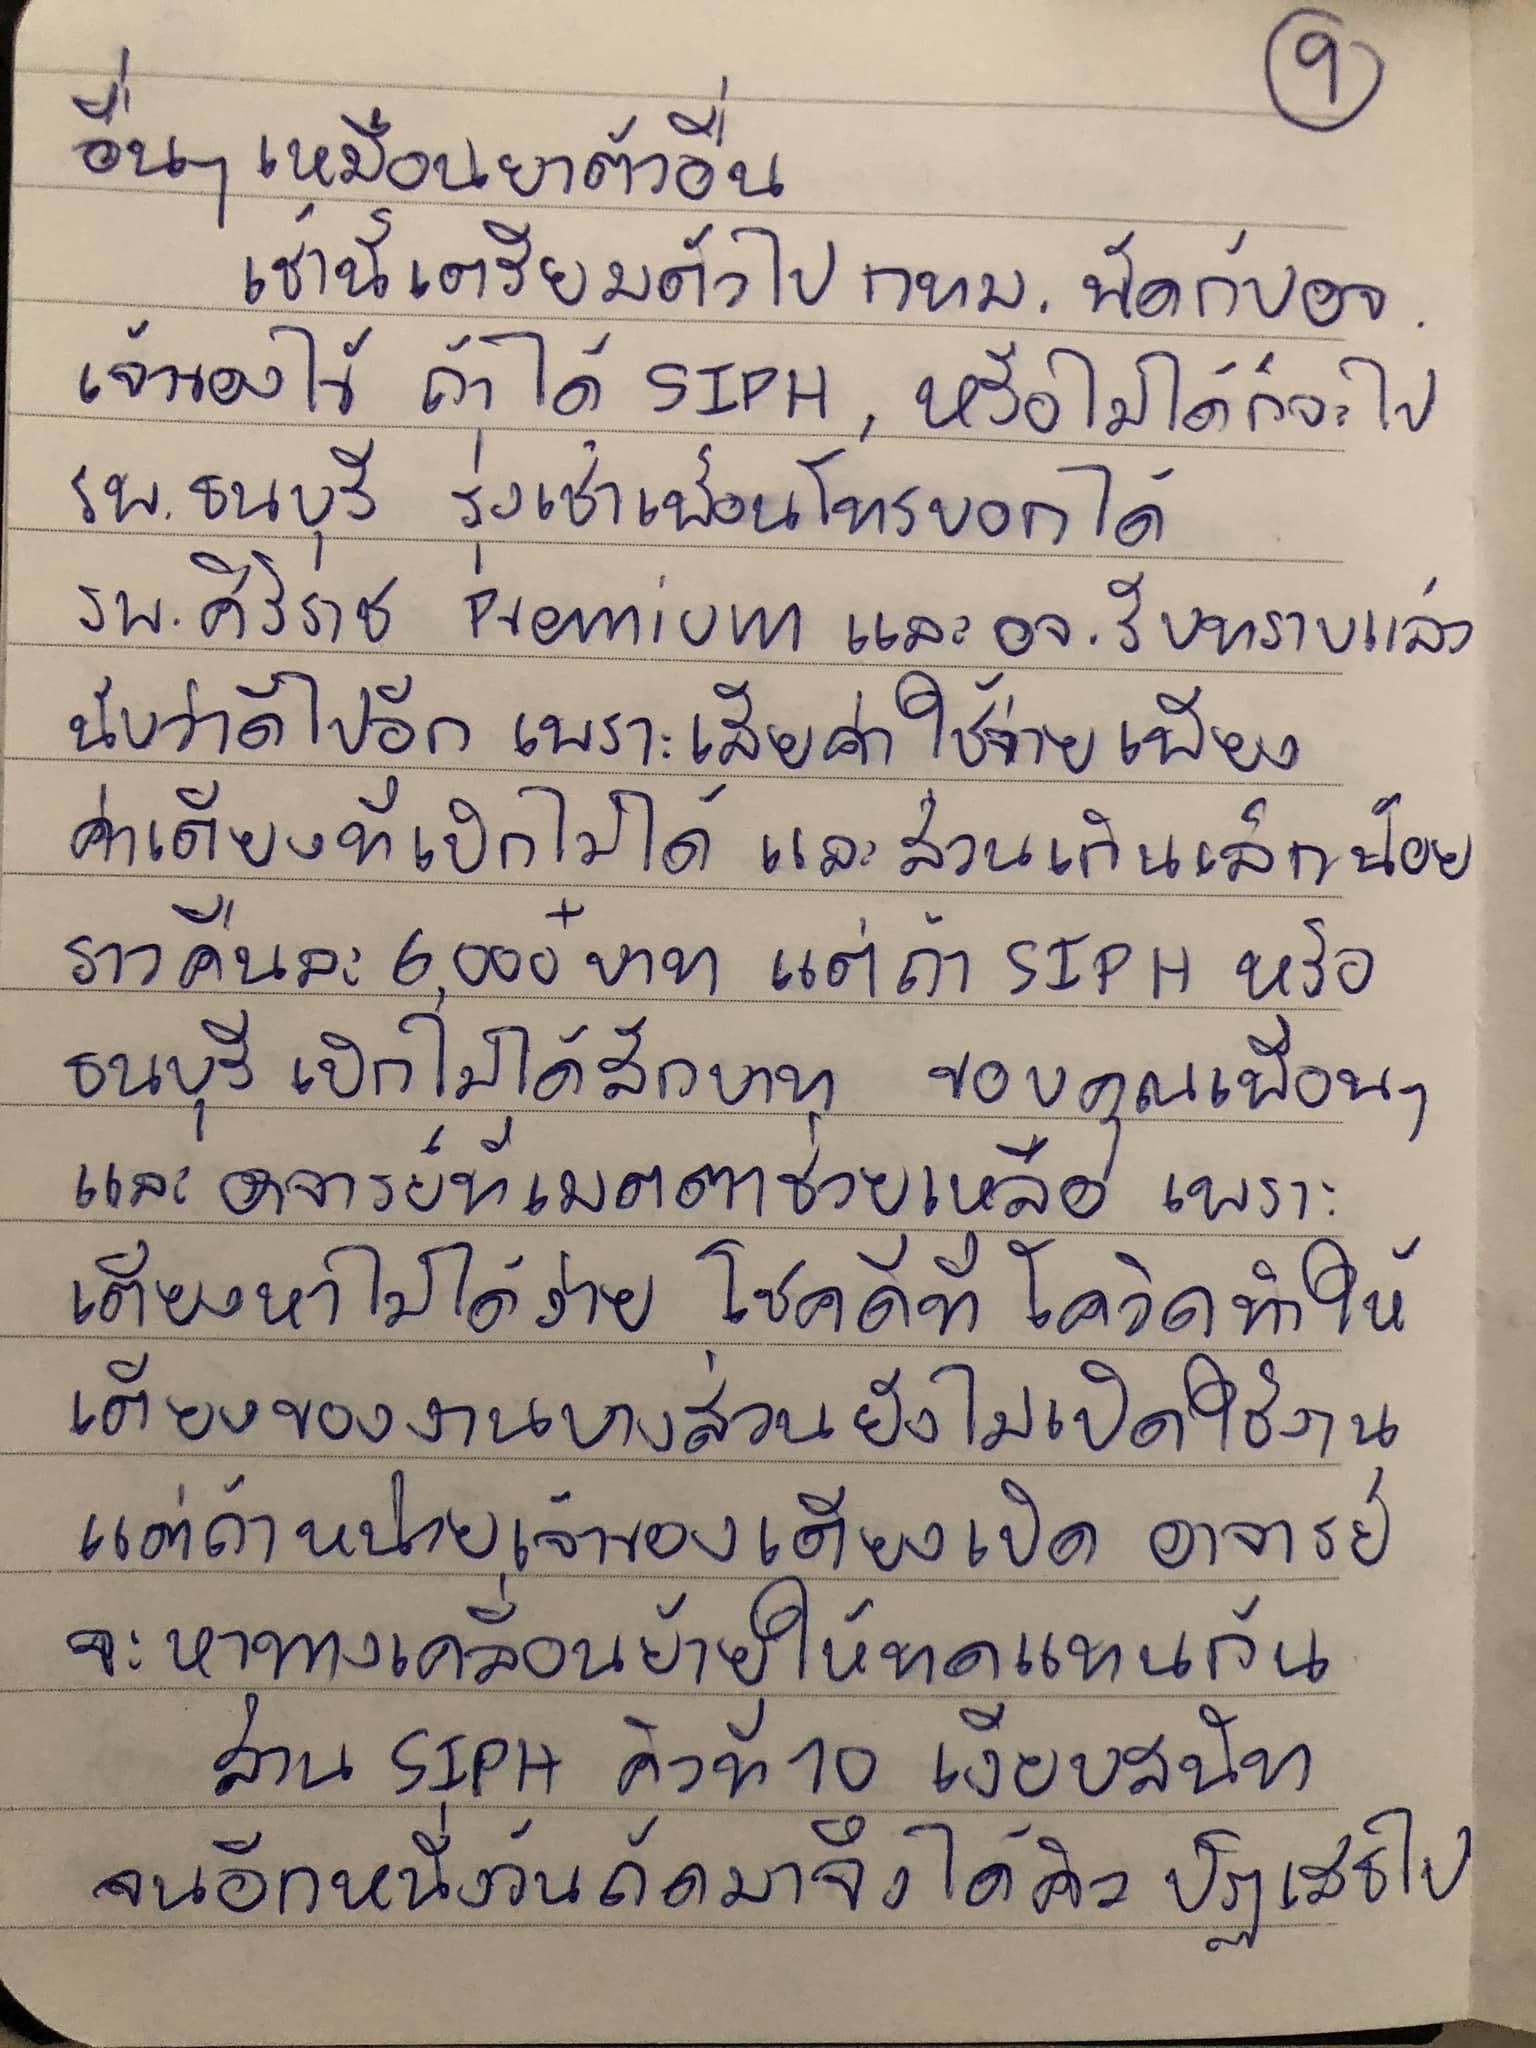 9
อื่นๆ เหมือนยาตัวอื่น
เช้านี้เตรียมตัวไป กทม. นัดกับอจ.
เจ้าของไข้ ถ้าได้ SIPH, หรือไม่ได้ก็จะไป
รพ.ธนบุรี รุ่งเช้าเพื่อนโทรบอกได้
รพ.ศิริราช Premium และ อจ.รับทราบแล้ว
นับว่าดีไปอีก เพราะเสียค่าใช้จ่ายเพียง
ค่าเตียงที่เบิกไม่ได้ และส่วนเกินเล็กน้อย
ราวคืนละ 6,000+ บาท แต่ถ้า SIPH หรือ
ธนบุรี เบิกไม่ได้สักบาท ขอบคุณเพื่อนๆ
และ อาจารย์ที่เมตตาช่วยเหลือ เพราะ
เตียงหาไม่ได้ง่าย โชคดีที่โควิดทำให้
เตียงของงานบางส่วนยังไม่เปิดใช้งาน
แต่ถ้าหน่วยเจ้าของเตียงเปิด อาจารย์
จะหาทางเคลื่อนย้ายให้ทดแทนกัน
ส่วน SIPH คิวที่ 10 เงียบสนิท
จนอีกหนึ่งวันถัดมาจึงได้คิว ปฏิเสธไป